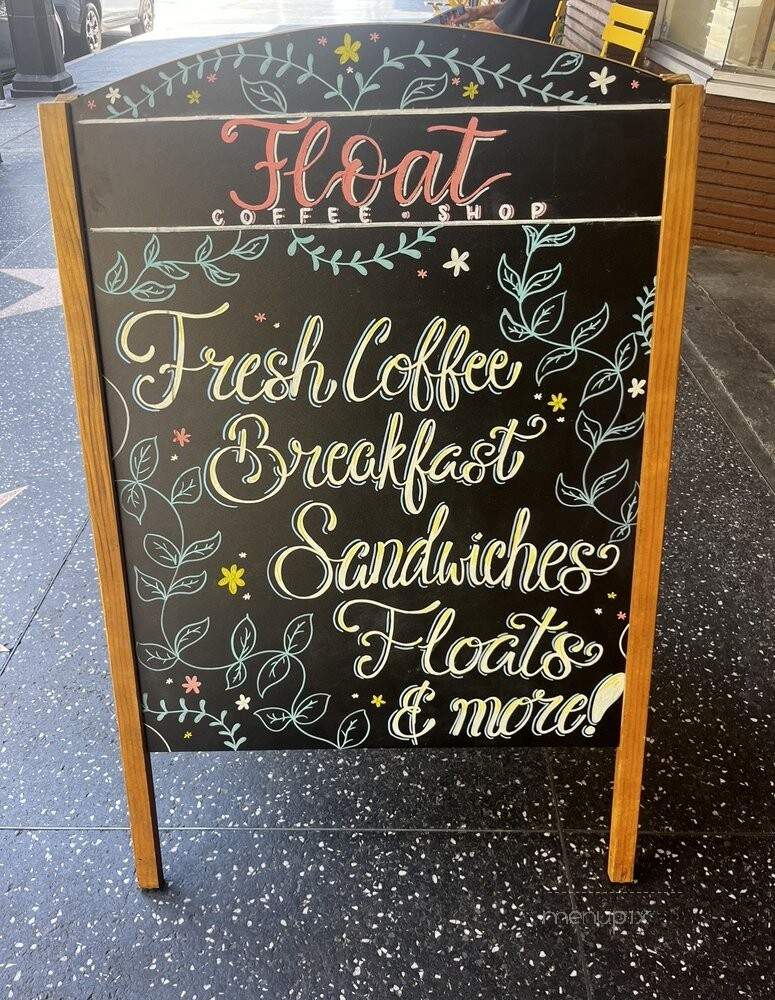 Float
COFFEE · SHOP
Fresh Coffee
Breakfast
Sandwiches
Floats
& more!
menupix